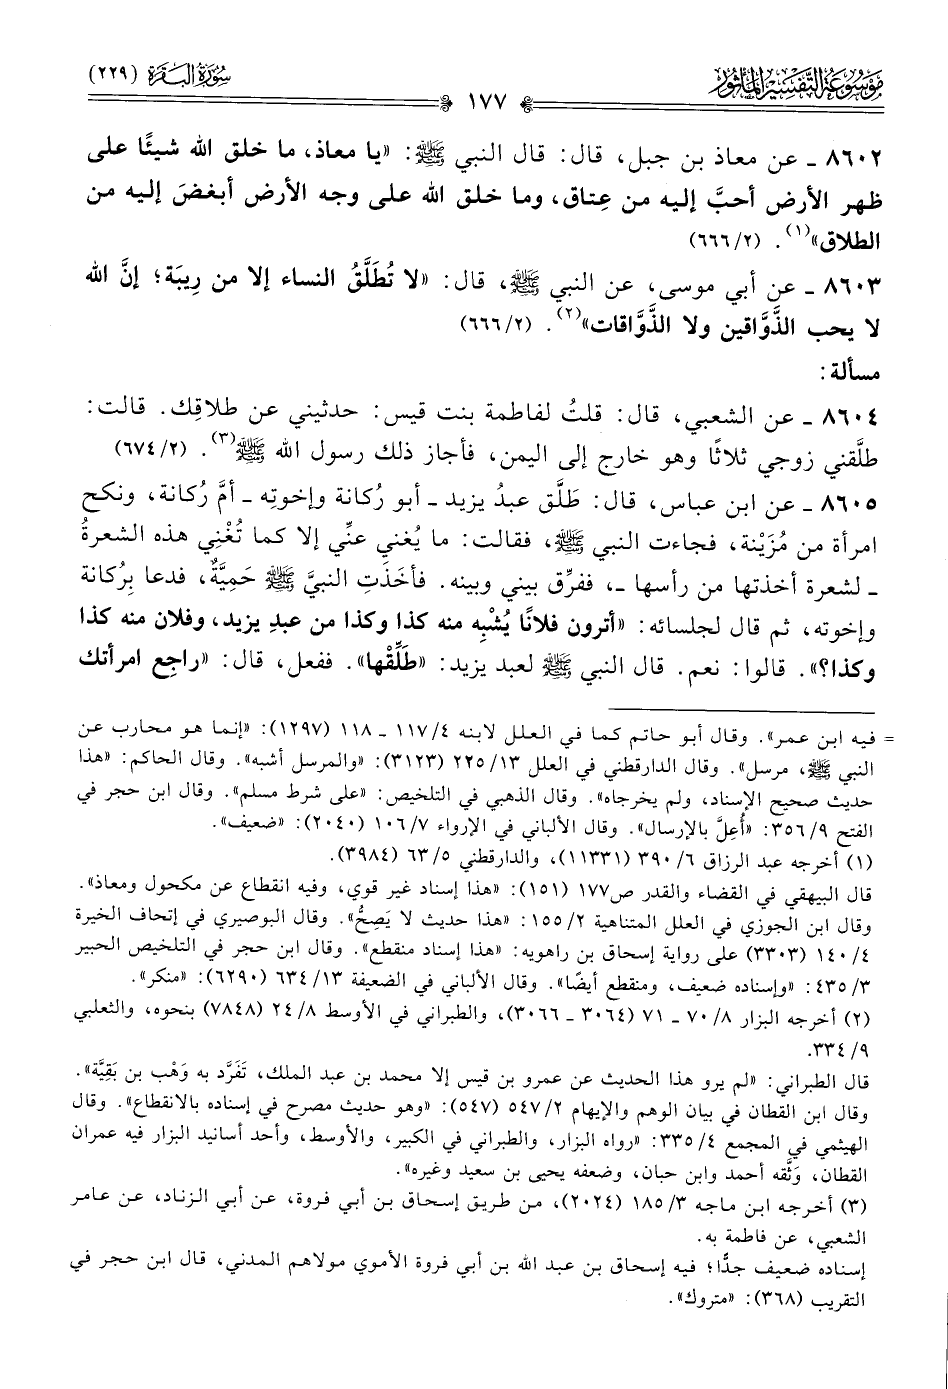 موسوعة التفسير المأثور
١٧٧
سورة البقرة (٢٢٩)
٨٦٠٢ ـ عن معاذ بن جبل، قال: قال النبي ﷺ: «يا معاذ، ما خلق الله شيئًا على
ظهر الأرض أحبَّ إليه من عِتاق، وما خلق الله على وجه الأرض أبغضَ إليه من
الطلاق»(١). (٢/ ٦٦٦)
٨٦٠٣ ـ عن أبي موسى، عن النبي ﷺ، قال: «لا تُطَلَّقُ النساء إلا من رِيبَة؛ إنَّ الله
لا يحب الذَّوَّاقين ولا الذَّوَّاقات»(٢). (٢/ ٦٦٦)
مسألة:
٨٦٠٤ ـ عن الشعبي، قال: قلتُ لفاطمة بنت قيس: حدثيني عن طلاقِك. قالت:
طلَّقني زوجي ثلاثًا وهو خارج إلى اليمن، فأجاز ذلك رسول الله ﷺ(٣). (٢/ ٦٧٤)
٨٦٠٥ ـ عن ابن عباس، قال: طَلَّق عبدُ يزيد ـ أبو رُكانة وإخوتِه ـ أمَّ رُكانة، ونكح
امرأة من مُزَيْنة، فجاءت النبي ﷺ، فقالت: ما يُغني عنِّي إلا كما تُغْنِي هذه الشعرةُ
ـ لشعرة أخذتها من رأسها ـ، ففرِّق بيني وبينه. فأخذَتِ النبيَّ ﷺ حَمِيَّةٌ، فدعا بِرُكانة
وإخوته، ثم قال لجلسائه: «أترون فلانًا يُشْبِه منه كذا وكذا من عبدِ يزيد، وفلان منه كذا
وكذا؟». قالوا: نعم. قال النبي ﷺ لعبد يزيد: «طَلِّقْها». ففعل، قال: «راجع امرأتك
= فيه ابن عمر». وقال أبو حاتم كما في العلل لابنه ٤/ ١١٧ ـ ١١٨ (١٢٩٧): «إنما هو محارب عن
النبي ﷺ، مرسل». وقال الدارقطني في العلل ١٣/ ٢٢٥ (٣١٢٣): «والمرسل أشبه». وقال الحاكم: «هذا
حديث صحيح الإسناد، ولم يخرجاه». وقال الذهبي في التلخيص: «على شرط مسلم». وقال ابن حجر في
الفتح ٩/ ٣٥٦: «أُعِلَّ بالإرسال». وقال الألباني في الإرواء ٧/ ١٠٦ (٢٠٤٠): «ضعيف».
(١) أخرجه عبد الرزاق ٦/ ٣٩٠ (١١٣٣١)، والدارقطني ٥/ ٦٣ (٣٩٨٤).
قال البيهقي في القضاء والقدر ص١٧٧ (١٥١): «هذا إسناد غير قوي، وفيه انقطاع عن مكحول ومعاذ».
وقال ابن الجوزي في العلل المتناهية ٢/ ١٥٥: «هذا حديث لا يَصِحُّ». وقال البوصيري في إتحاف الخيرة
٤/ ١٤٠ (٣٣٠٣) على رواية إسحاق بن راهويه: «هذا إسناد منقطع». وقال ابن حجر في التلخيص الحبير
٣/ ٤٣٥: «وإسناده ضعيف، ومنقطع أيضًا». وقال الألباني في الضعيفة ١٣/ ٦٣٤ (٦٢٩٠): «منكر».
(٢) أخرجه البزار ٨/ ٧٠ ـ ٧١ (٣٠٦٤ ـ ٣٠٦٦)، والطبراني في الأوسط ٨/ ٢٤ (٧٨٤٨) بنحوه، والثعلبي
٩/ ٣٣٤.
قال الطبراني: «لم يرو هذا الحديث عن عمرو بن قيس إلا محمد بن عبد الملك، تَفَرَّد به وَهْب بن بَقِيَّة».
وقال ابن القطان في بيان الوهم والإيهام ٢/ ٥٤٧ (٥٤٧): «وهو حديث مصرح في إسناده بالانقطاع». وقال
الهيثمي في المجمع ٤/ ٣٣٥: «رواه البزار، والطبراني في الكبير، والأوسط، وأحد أسانيد البزار فيه عمران
القطان، وَثَّقه أحمد وابن حبان، وضعفه يحيى بن سعيد وغيره».
(٣) أخرجه ابن ماجه ٣/ ١٨٥ (٢٠٢٤)، من طريق إسحاق بن أبي فروة، عن أبي الزناد، عن عامر
الشعبي، عن فاطمة به.
إسناده ضعيف جدًّا؛ فيه إسحاق بن عبد الله بن أبي فروة الأموي مولاهم المدني، قال ابن حجر في
التقريب (٣٦٨): «متروك».